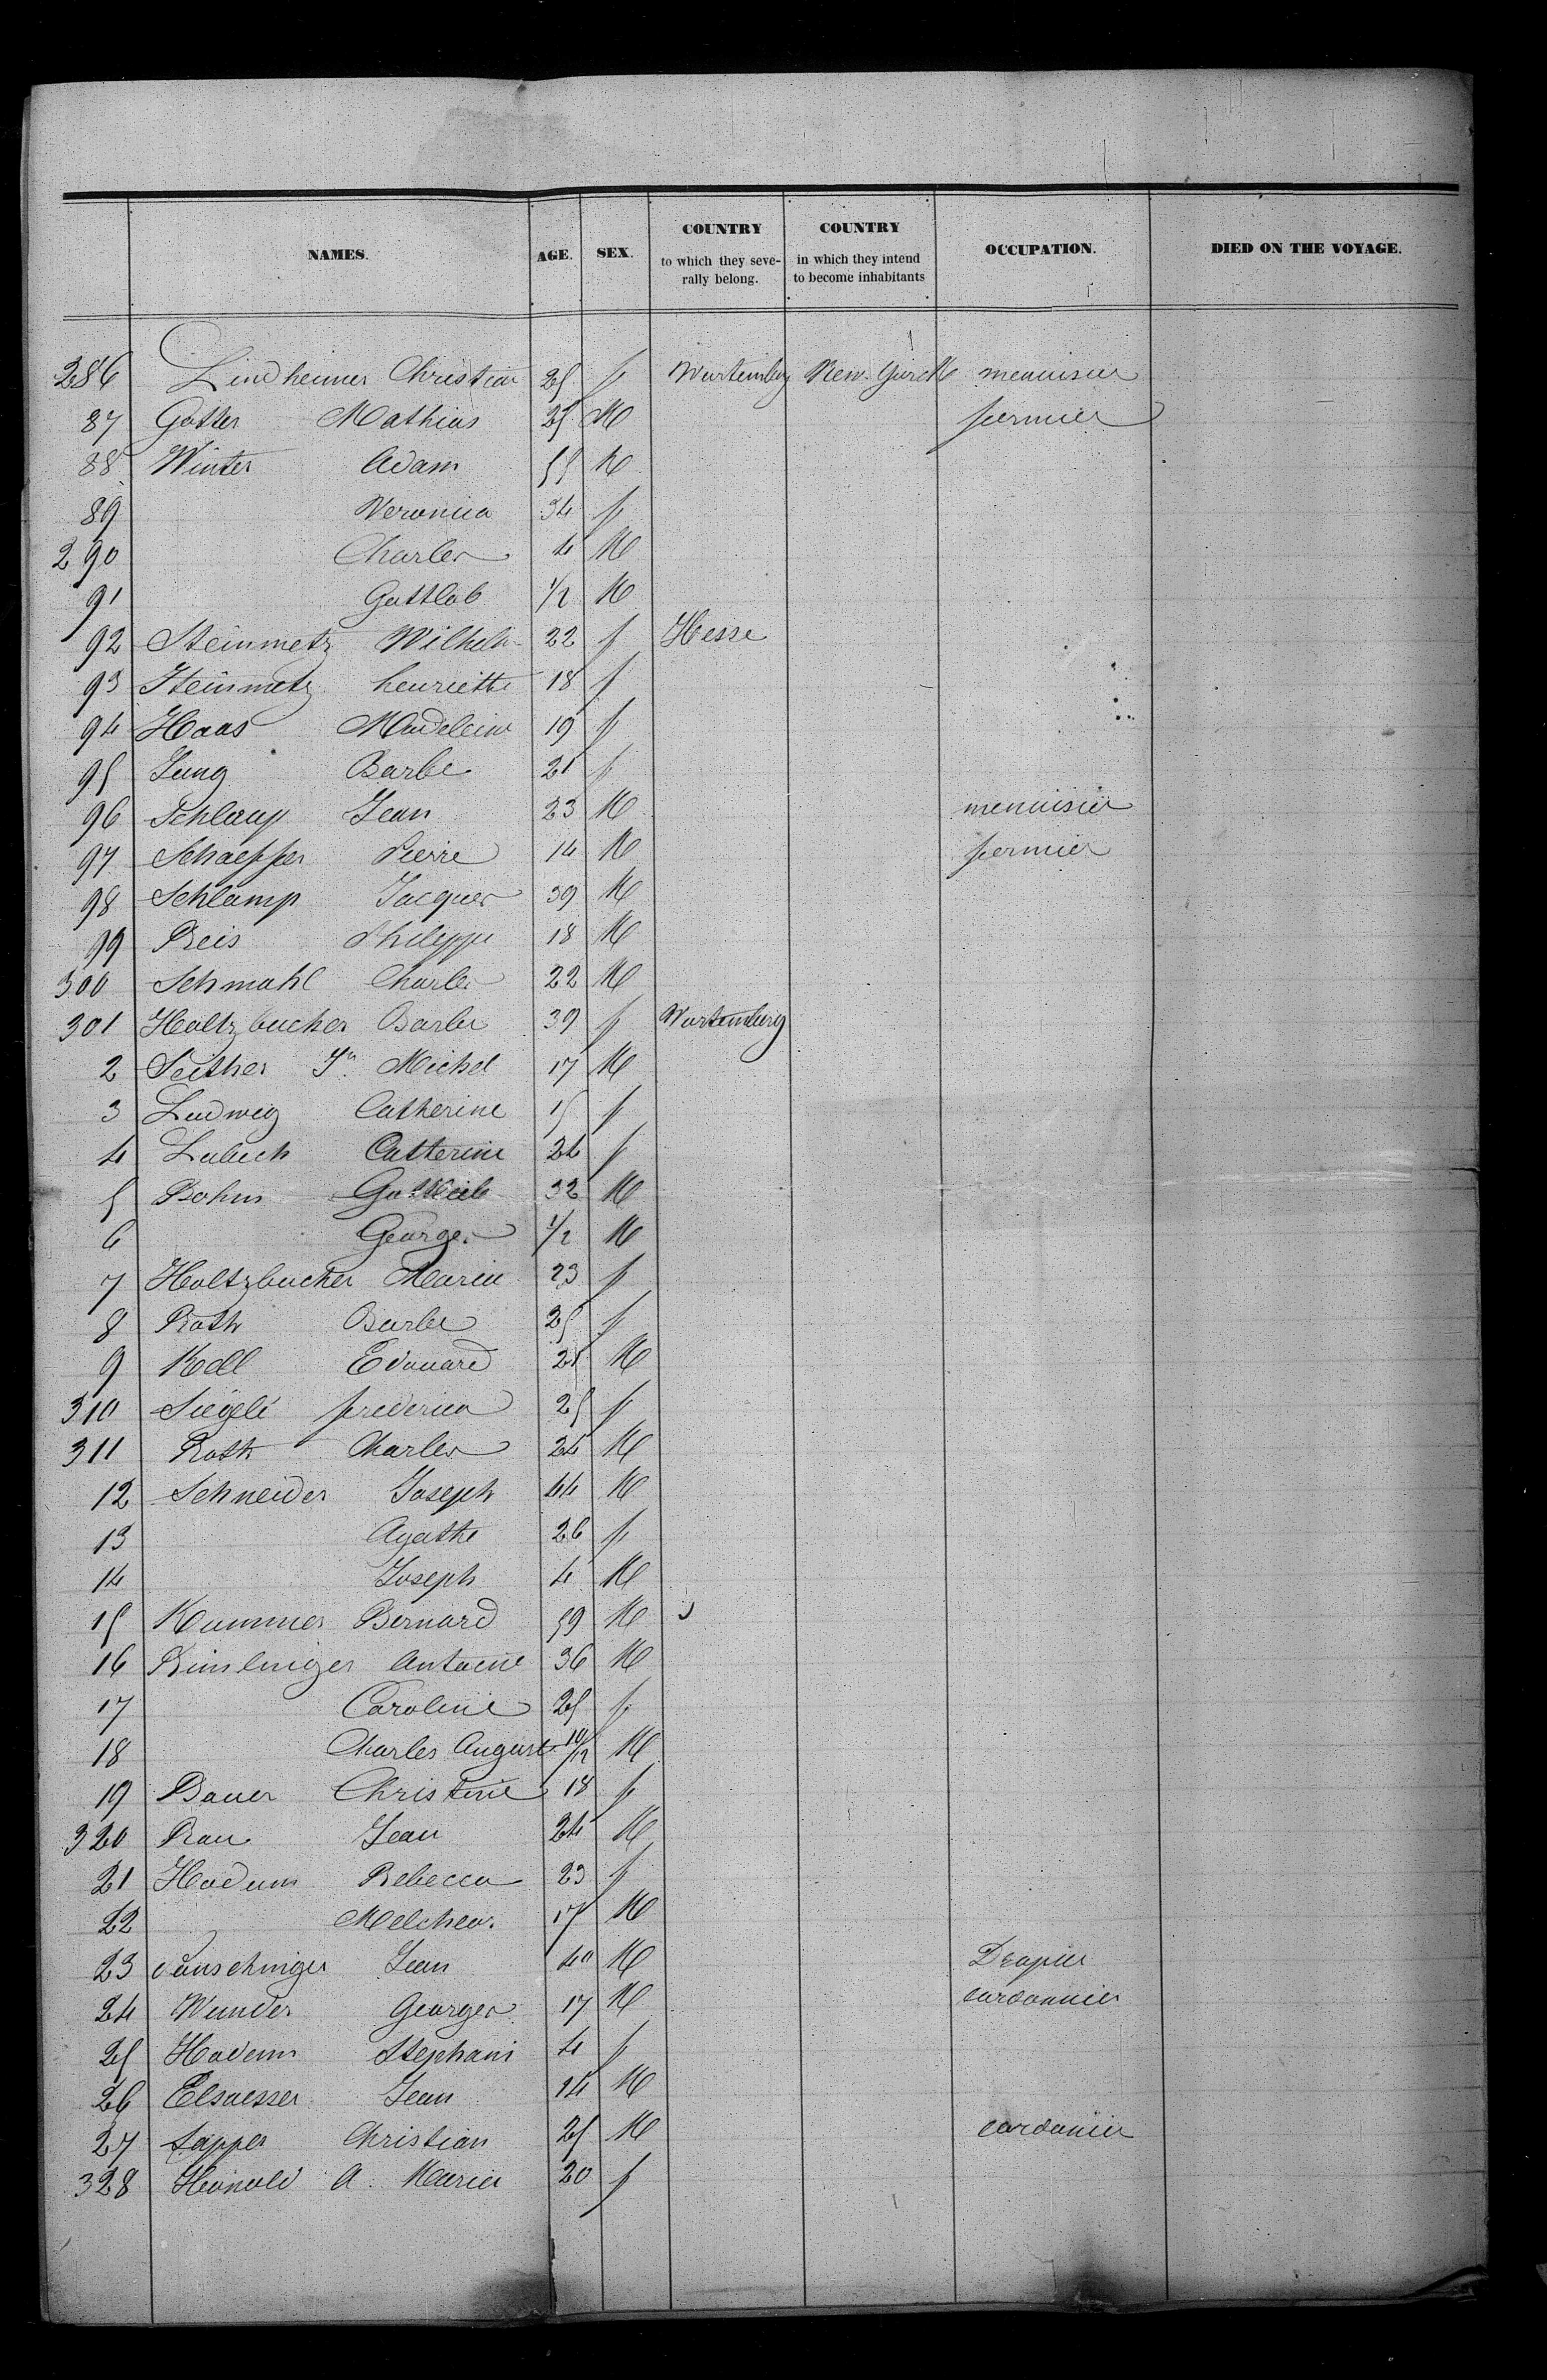 NAMES. AGE. SEX. COUNTRY to which they severally belong. COUNTRY in which they intend to become inhabitants OCCUPATION. DIED ON THE VOYAGE.
286 Lindheimer Christian 25 f Wurtemberg New Yorck menuisier
87 Gotter Mathias 25 M fermier
88 Winter Adam 55 M
89 Veronica 34 f
290 Charles 4 M
91 Gottlob 1/2 M
92 Steinmetz Wilhelm 22 f Hesse
93 Steinmetz henriette 18 f
94 Haas Madeleine 19 f
95 Jung Barbe 21 f
96 Schlaup Jean 23 M menuisier
97 Schaeffer Pierre 14 M fermier
98 Schlamp Jacques 39 M
99 Reis Philippe 18 M
300 Schmahl Charles 22 M
301 Holtzbucher Barbe 39 f Wurtemberg
2 Seither Jn Michel 17 M
3 Ludwig Catherine 15 f
4 Lubich Catterine 24 f
5 Bohm Gottleib 32 M
6 Georges 1/2 M
7 Holtzbucher Maria 23 f
8 Roth Barbe 25 f
9 Kell Edouard 21 M
310 Siegele frederica 25 f
311 Roth Charles 24 M
12 Schneider Joseph 44 M
13 Agathe 26 f
14 Joseph 4 M
15 Kummer Bernard 59 M
16 Rimlinger Antoine 36 M
17 Caroline 25 f
18 Charles August 10/12 M
19 Bauer Christine 18 f
320 Rau Jean 24 M
21 Hodum Rebecca 23 f
22 Melcheor 17 M
23 Jean 40 M Drapier
24 Wunder Georges 17 M cordonnier
25 Hodum Stephani 4 f
26 Elsaesser Jean 14 M
27 Sapper Christian 25 M cordonier
328 Heinold A. Maria 20 f